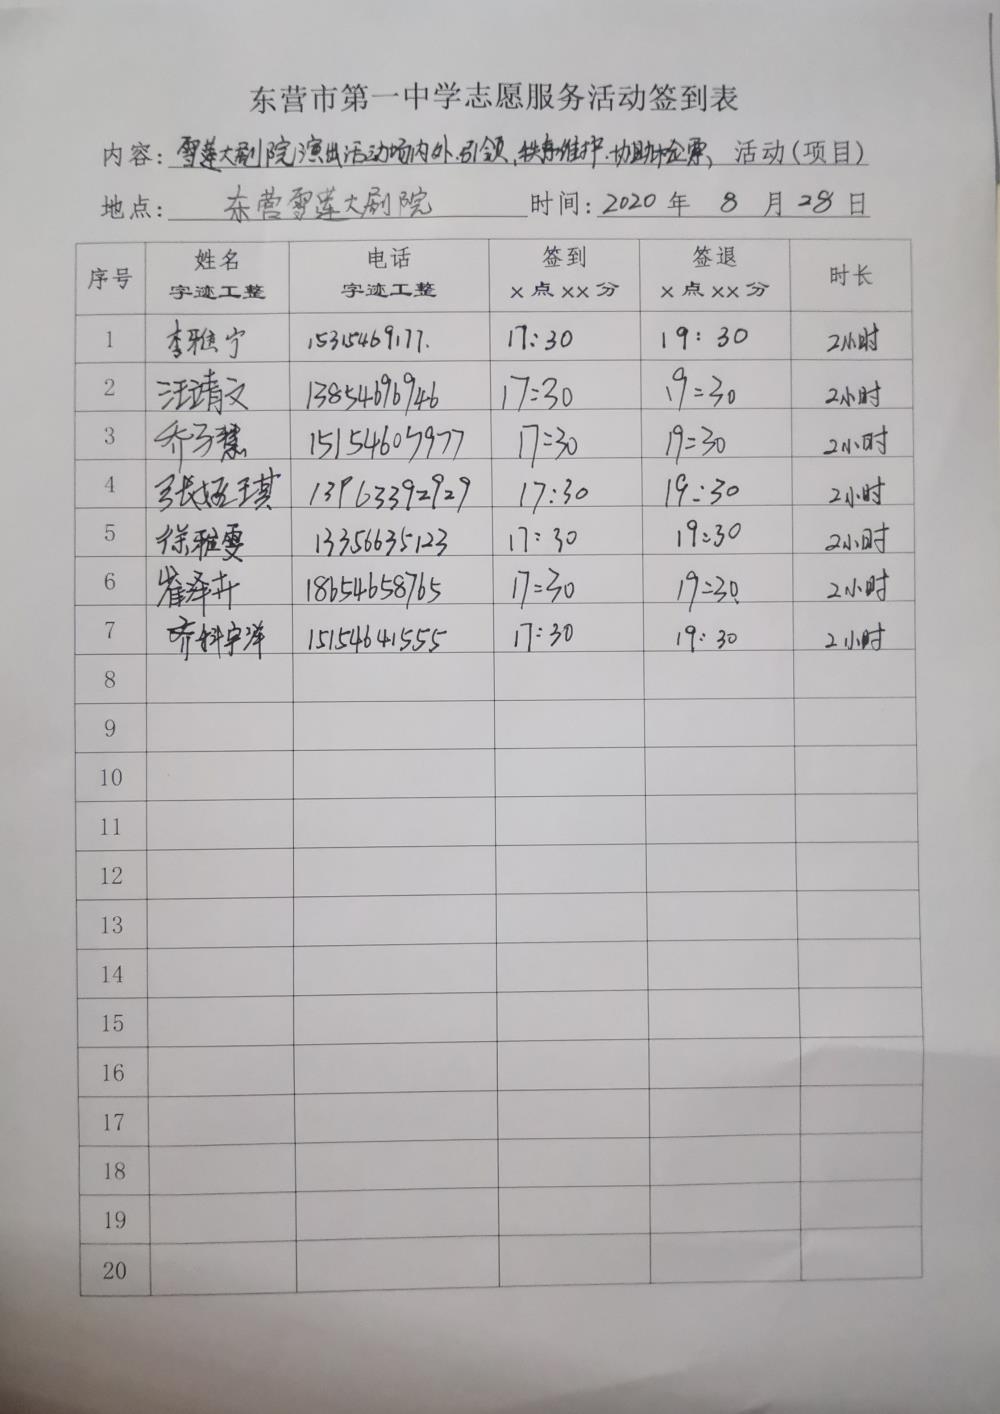 东营市第一中学志愿服务活动签到表
内容: 雪莲大剧院演出活动场内外引领、秩序维护、协助检票、 活动(项目)
地点: 东营雪莲大剧院 时间: 2020 年 8 月 28 日
序号 姓名 字迹工整 电话 字迹工整 签到 X 点 XX 分 签退 X 点 XX 分 时长
1 李雅宁 15315469177. 17:30 19:30 2小时
2 汪靖文 13854696946 17:30 19:30 2小时
3 乔子慧 15154607977 17:30 19:30 2小时
4 13963392929 17:30 19:30 2小时
5 徐雅雯 13356635123 17:30 19:30 2小时
6 崔泽卉 18654658765 17:30 19:30 2小时
7 15154641555 17:30 19:30 2小时
8
9
10
11
12
13
14
15
16
17
18
19
20